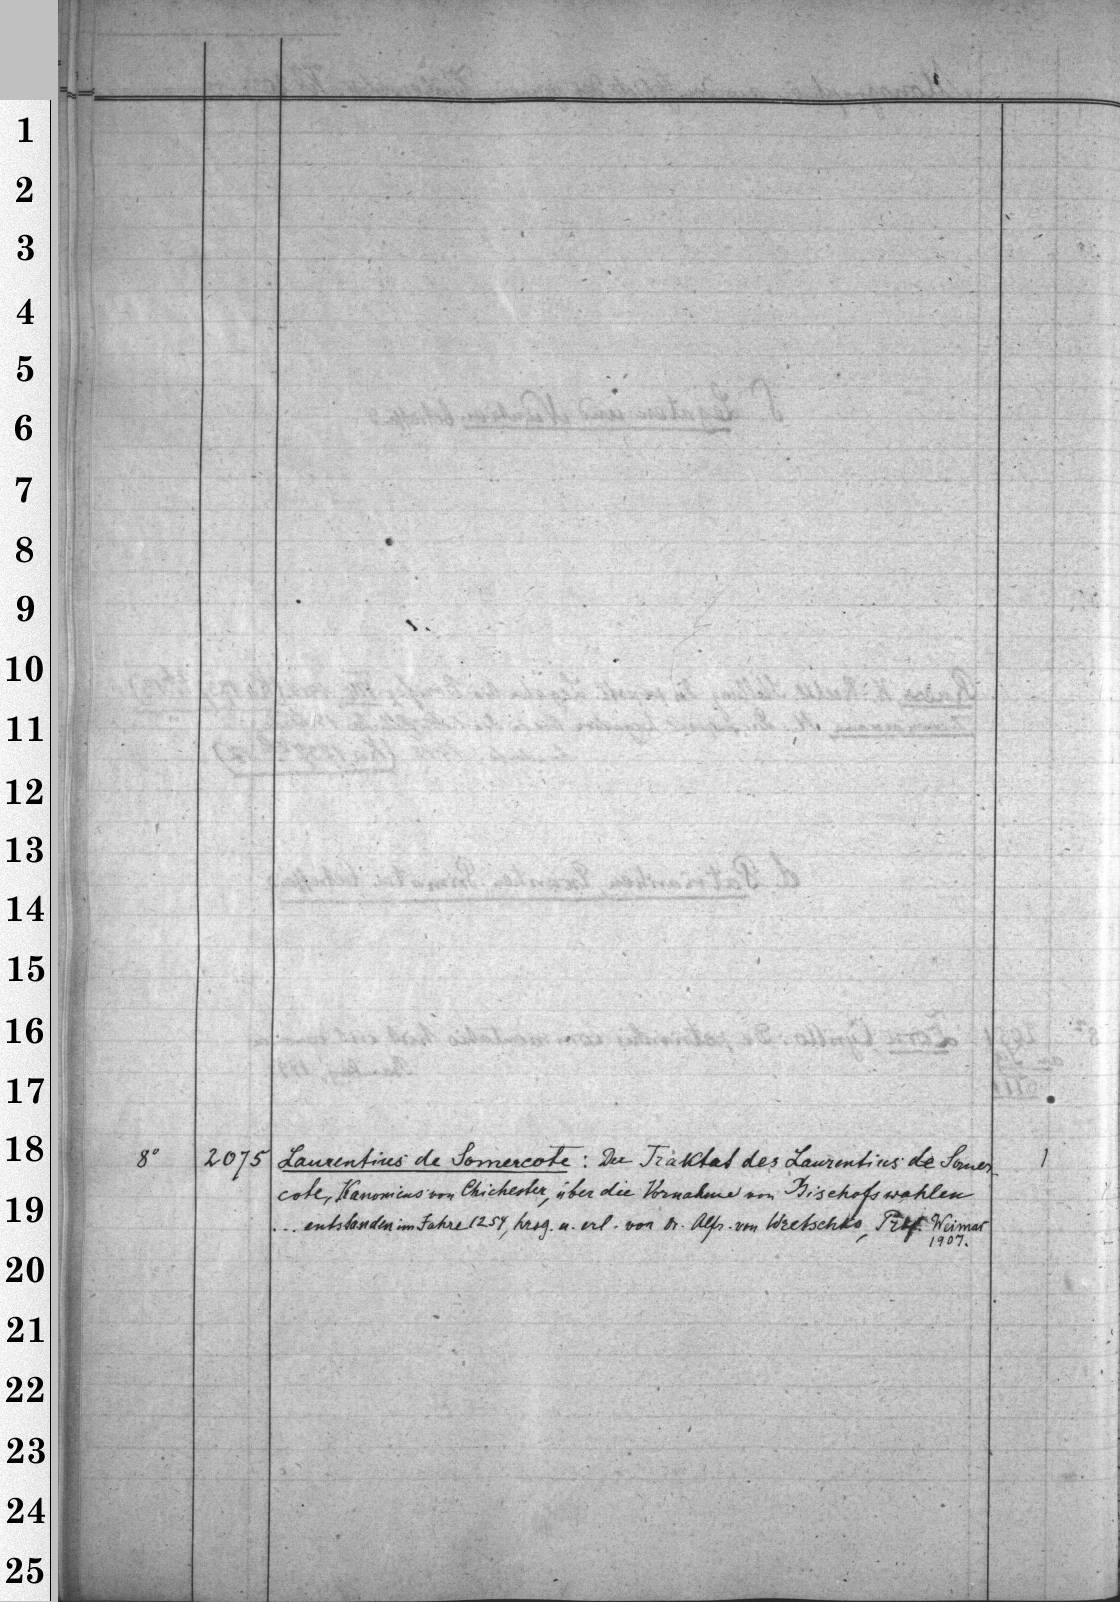 1
2
3
4
5
6
7
8
9
10
11
12
13
14
15
16
17
18
8° 2075 Laurentius de Somercote : Der Traktat des Laurentius de Somer- 1
cote, Kanonicus von Chichester, über die Vornahme von Bischofswahlen
19
... entstanden im Jahre 1254, hrsg. u. erl. von Dr. Alfr. von Wretschko, Prof. Weimar
1907.
20
21
22
23
24
25